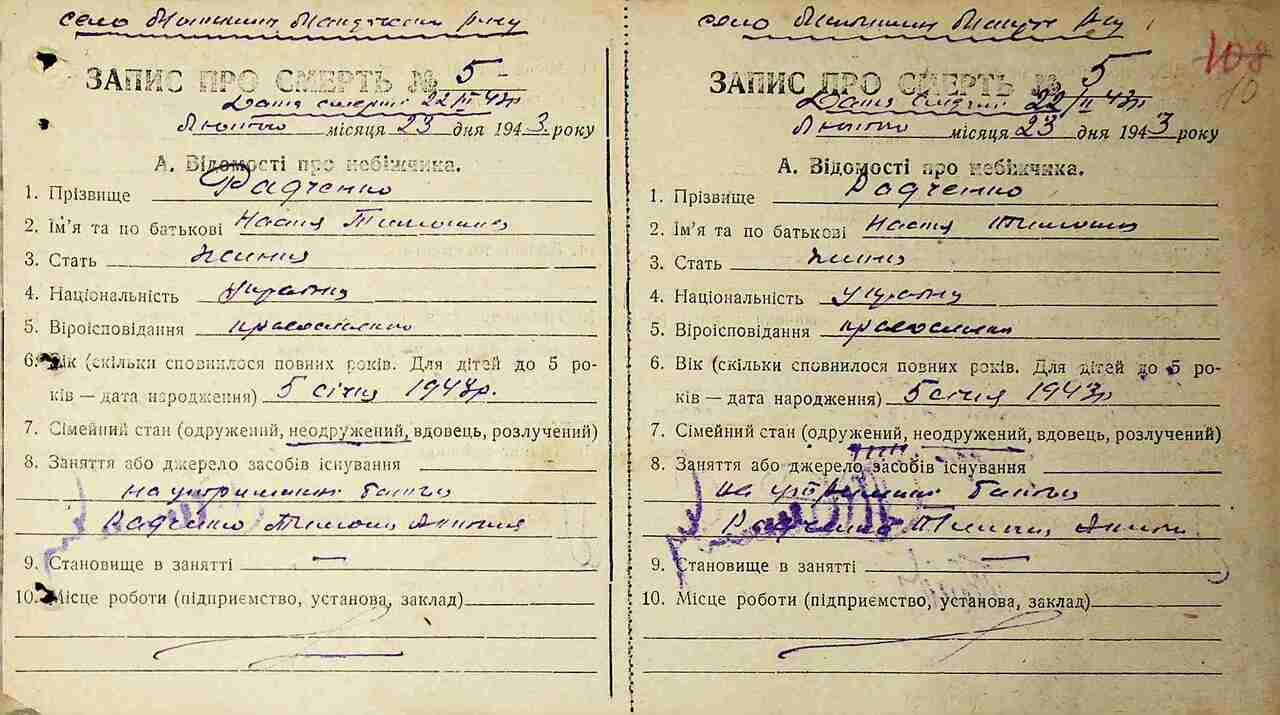 село
ЗАПИС ПРО СМЕРТЬ № 5
Дата смерті 22/II 43р
Лютого місяця 23 дня 1943 року
А. Відомості про небіжчика.
1. Прізвище Радченко
2. Ім'я та по батькові Настя
3. Стать
4. Національність
5. Віроісповідання
6. Вік (скільки сповнилося повних років. Для дітей до 5 ро-
ків — дата народження) 5 січня 1943р.
7. Сімейний стан (одружений, неодружений, вдовець, розлучений)
8. Заняття або джерело засобів існування
на утриманні батька
Радченко
9. Становище в занятті —
10. Місце роботи (підприємство, установа, заклад)
село
108
10
ЗАПИС ПРО СМЕРТЬ № 5
Дата смерті 22/II 43р
Лютого місяця 23 дня 1943 року
А. Відомості про небіжчика.
1. Прізвище Радченко
2. Ім'я та по батькові Настя
3. Стать
4. Національність
5. Віроісповідання
6. Вік (скільки сповнилося повних років. Для дітей до 5 ро-
ків — дата народження) 5 січня 1943р
7. Сімейний стан (одружений, неодружений, вдовець, розлучений)
8. Заняття або джерело засобів існування
на утриманні батька
Радченко
9. Становище в занятті —
10. Місце роботи (підприємство, установа, заклад)